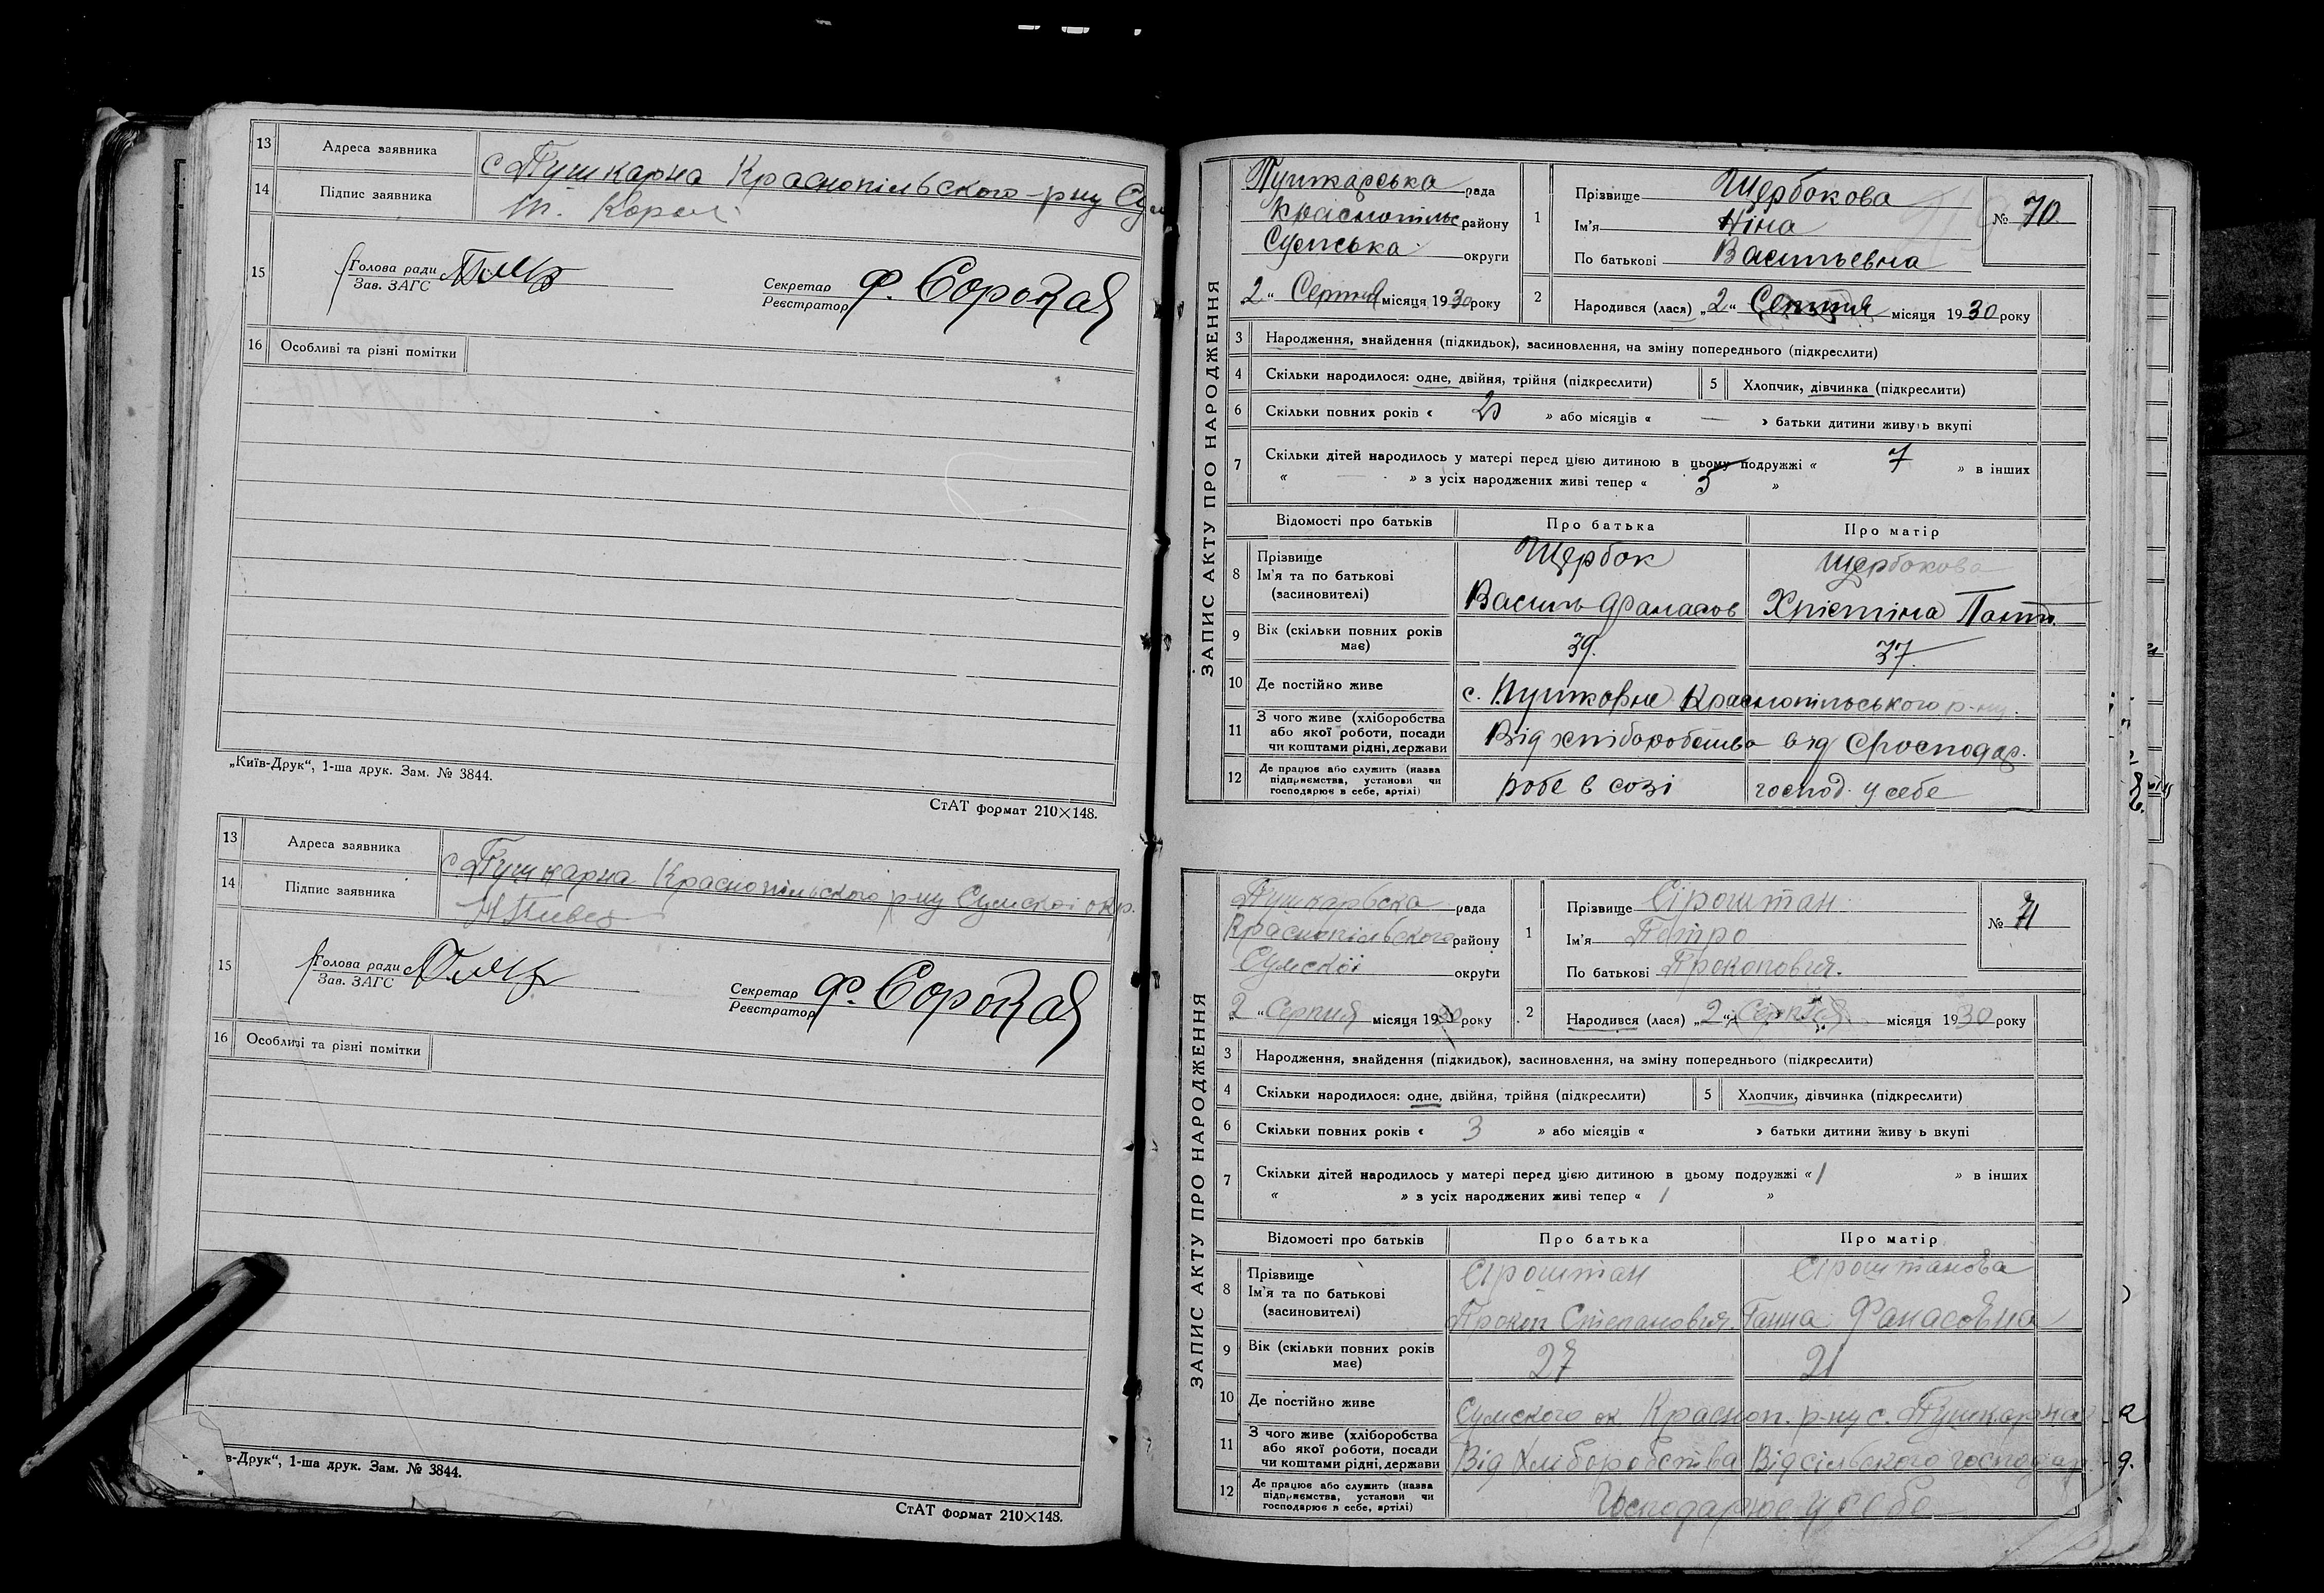 13 Адреса заявника с Пушкарна Краснопільского-рну Сум
14 Підпис заявника
15 Голова ради
Зав. ЗАГС
Секретар
Реєстратор Ф. Сорокая
16 Особливі та різні помітки
„Київ-Друк“, 1-ша друк. Зам. № 3844.
СтАТ формат 210×148.
13 Адреса заявника с. Пушкарна Краснопільского рну Сумскої окр.
14 Підпис заявника
15 Голова ради
Зав. ЗАГС
Секретар
Реєстратор Ф. Сорокая
16 Особливі та різні помітки
в-Друк“, 1-ша друк. Зам. № 3844.
СтАТ формат 210×148.
ЗАПИС АКТУ ПРО НАРОДЖЕННЯ
Пушкарська рада
Краснопільс району
Сумська округи
2 “ Серпня місяця 1930 року
1 Прізвище Щербокова
Ім'я Ніна
По батькові Васильевна
№ 70
2 Народився (лася) „2“ Серпня місяця 1930 року
3 Народження, знайдення (підкидьок), засиновлення, на зміну попереднього (підкреслити)
4 Скільки народилося: одне, двійня, трійня (підкреслити) 5 Хлопчик, дівчинка (підкреслити)
6 Скільки повних років « » або місяців « — » батьки дитини живуть вкупі
7 Скільки дітей народилось у матері перед цією дитиною в цьому подружжі « 7 » в інших
« — » з усіх народжених живі тепер « 5 »
Відомості про батьків Про батька Про матір
8 Прізвище Щербок Щербокова
Ім'я та по батькові
(засиновителі) Василь Фанасов Хрістіна Пант.
9 Вік (скільки повних років має) 39. 37.
10 Де постійно живе с. Пушкорне Краснопільського р-ну.
11 З чого живе (хліборобства
або якої роботи, посади
чи коштами рідні, держави Від хліборобства від Сгосподар.
12 Де працює або служить (назва
підприємства, установи чи
господарює в себе, артілі) робе в созі господ. у себе
ЗАПИС АКТУ ПРО НАРОДЖЕННЯ
Пушкарвска рада
Краснопільского району
Сумскої округи
2 “ Серпня місяця 1930 року
1 Прізвище Сіроштан
Ім'я Петро
По батькові Прокопович.
№ 71
2 Народився (лася) „2“ Серпня місяця 1930 року
3 Народження, знайдення (підкидьок), засиновлення, на зміну попереднього (підкреслити)
4 Скільки народилося: одне, двійня, трійня (підкреслити) 5 Хлопчик, дівчинка (підкреслити)
6 Скільки повних років « 3 » або місяців « » батьки дитини живуть вкупі
7 Скільки дітей народилось у матері перед цією дитиною в цьому подружжі « 1 » в інших
« » з усіх народжених живі тепер « 1 »
Відомості про батьків Про батька Про матір
8 Прізвище Сіроштан Сіроштанова
Ім'я та по батькові
(засиновителі) Прокоп Степанович. Ганна Фанасовна
9 Вік (скільки повних років має) 27 21
10 Де постійно живе Сумского ок Красноп. р-ну с. Пушкарна
11 З чого живе (хліборобства
або якої роботи, посади
чи коштами рідні, держави Від Хліборобства Від сільского господар.
12 Де працює або служить (назва
підприємства, установи чи
господарює в себе, артілі) Господарює у себе